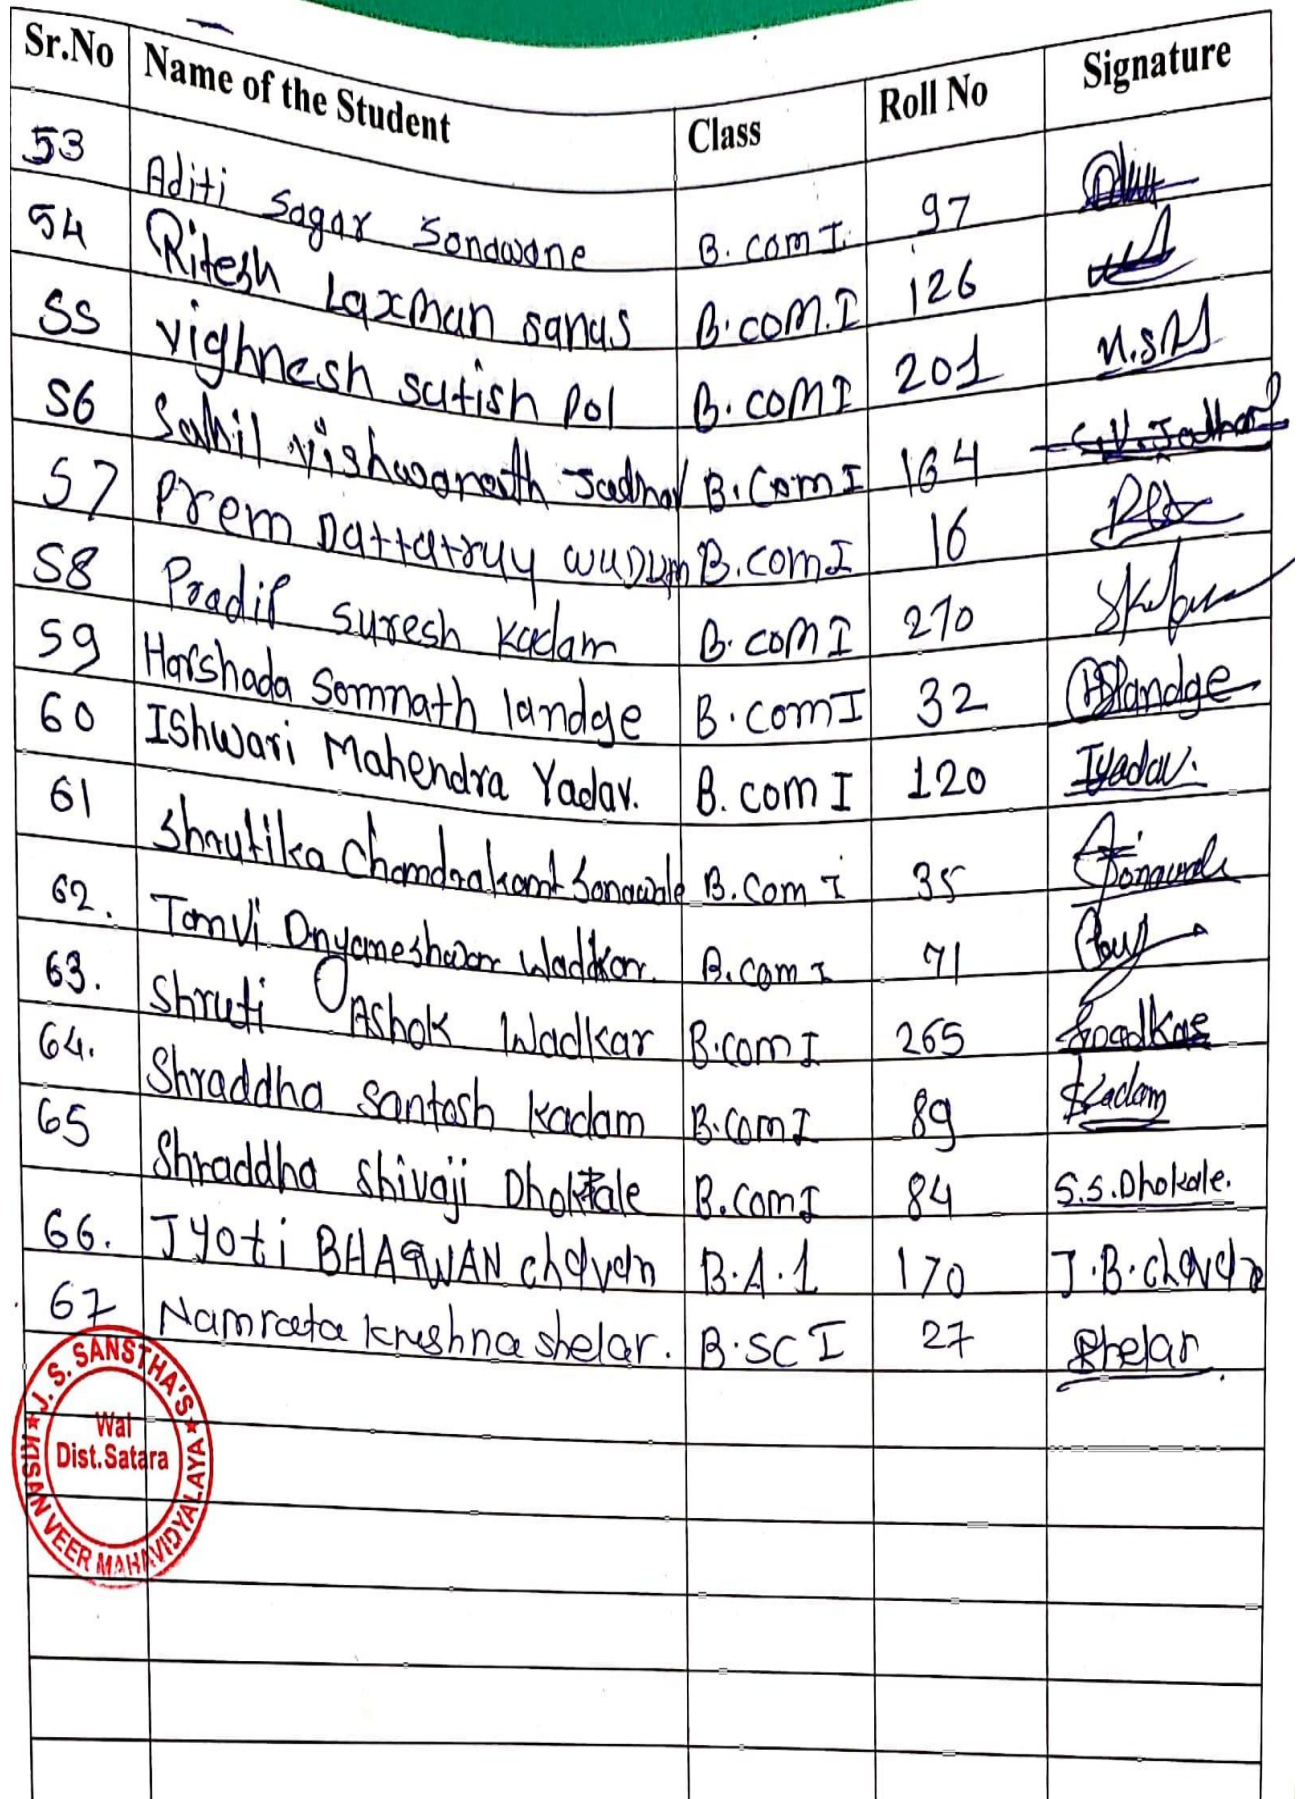 Sr.No Name of the Student Class Roll No Signature
53 Aditi Sagar Sonawane B. com I. 97
54 Ritesh Laxman sanas B.com.I 126
55 vighnesh satish pol B.com I 201
56 Sahil vishwanath Jadhav B.Com I 164 S.V.Jadhav
57 Prem Dattatray B.com I 16
58 Pradip suresh kadam B.com I 270
59 Harshada Somnath landge B.com I 32 HSlandge
60 IShwari Mahendra Yadav. B.com I 120 Iyadav.
61 Shrutika Chandrakant Sonawale B.Com I 35
62. Tanvi Dnyaneshwar Wadkar B.com I 71
63. Shruti Ashok Wadkar B.com I 265 Swadkar
64. Shraddha Santosh kadam B.com I 89 Skadam
65 Shraddha Shivaji Dhokale B.com I 84 S.S.Dhokale.
66. Jyoti BHAGWAN chavan B.A.1 170 J.B.chavan
67 Namrata krushna shelar. B.SC I 27 Shelar
J. S. SANSTHA'S
Wai
Dist.Satara
KISAN VEER MAHAVIDYALAYA